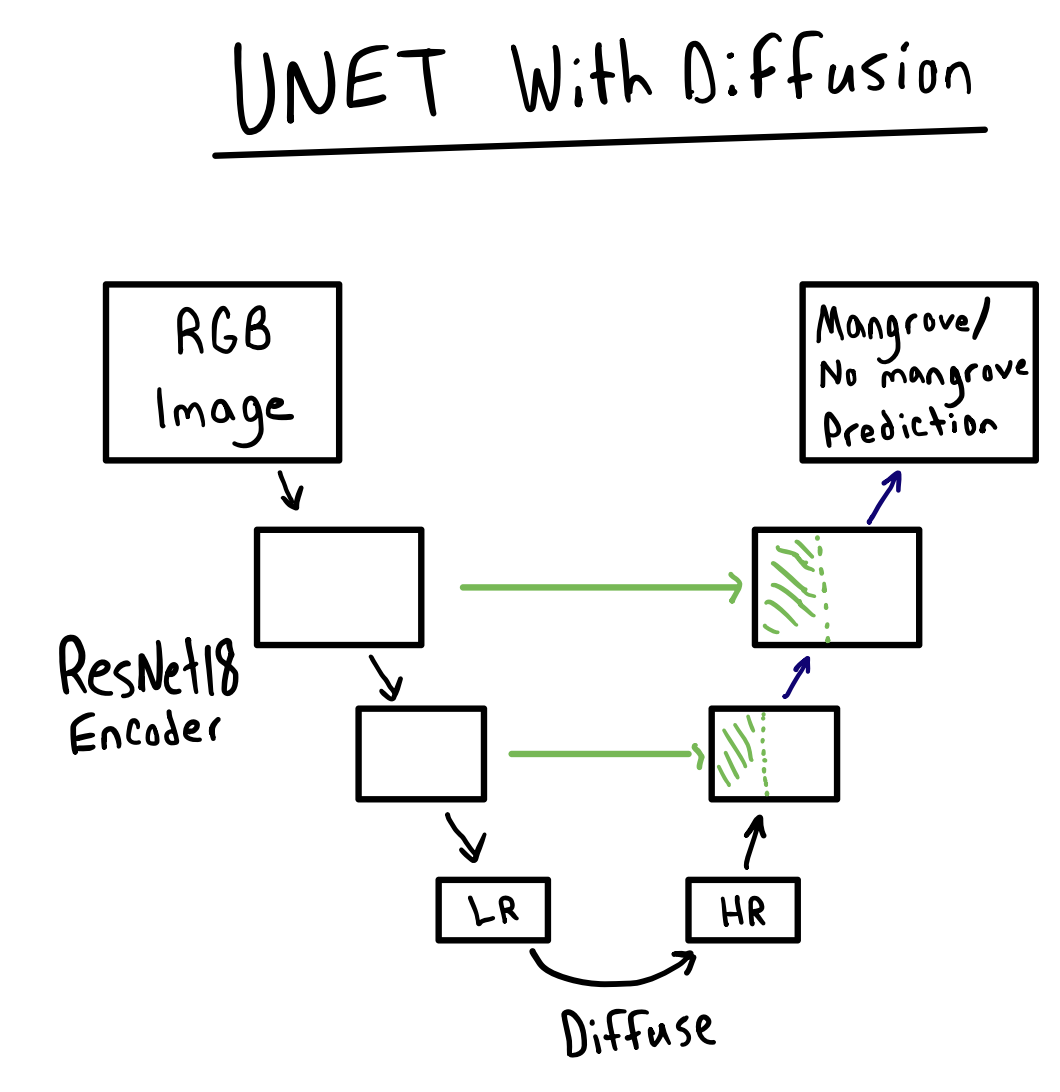 UNET With Diffusion
RGB
Image
Mangrove/
No mangrove
Prediction
ResNet18
Encoder
LR
HR
Diffuse